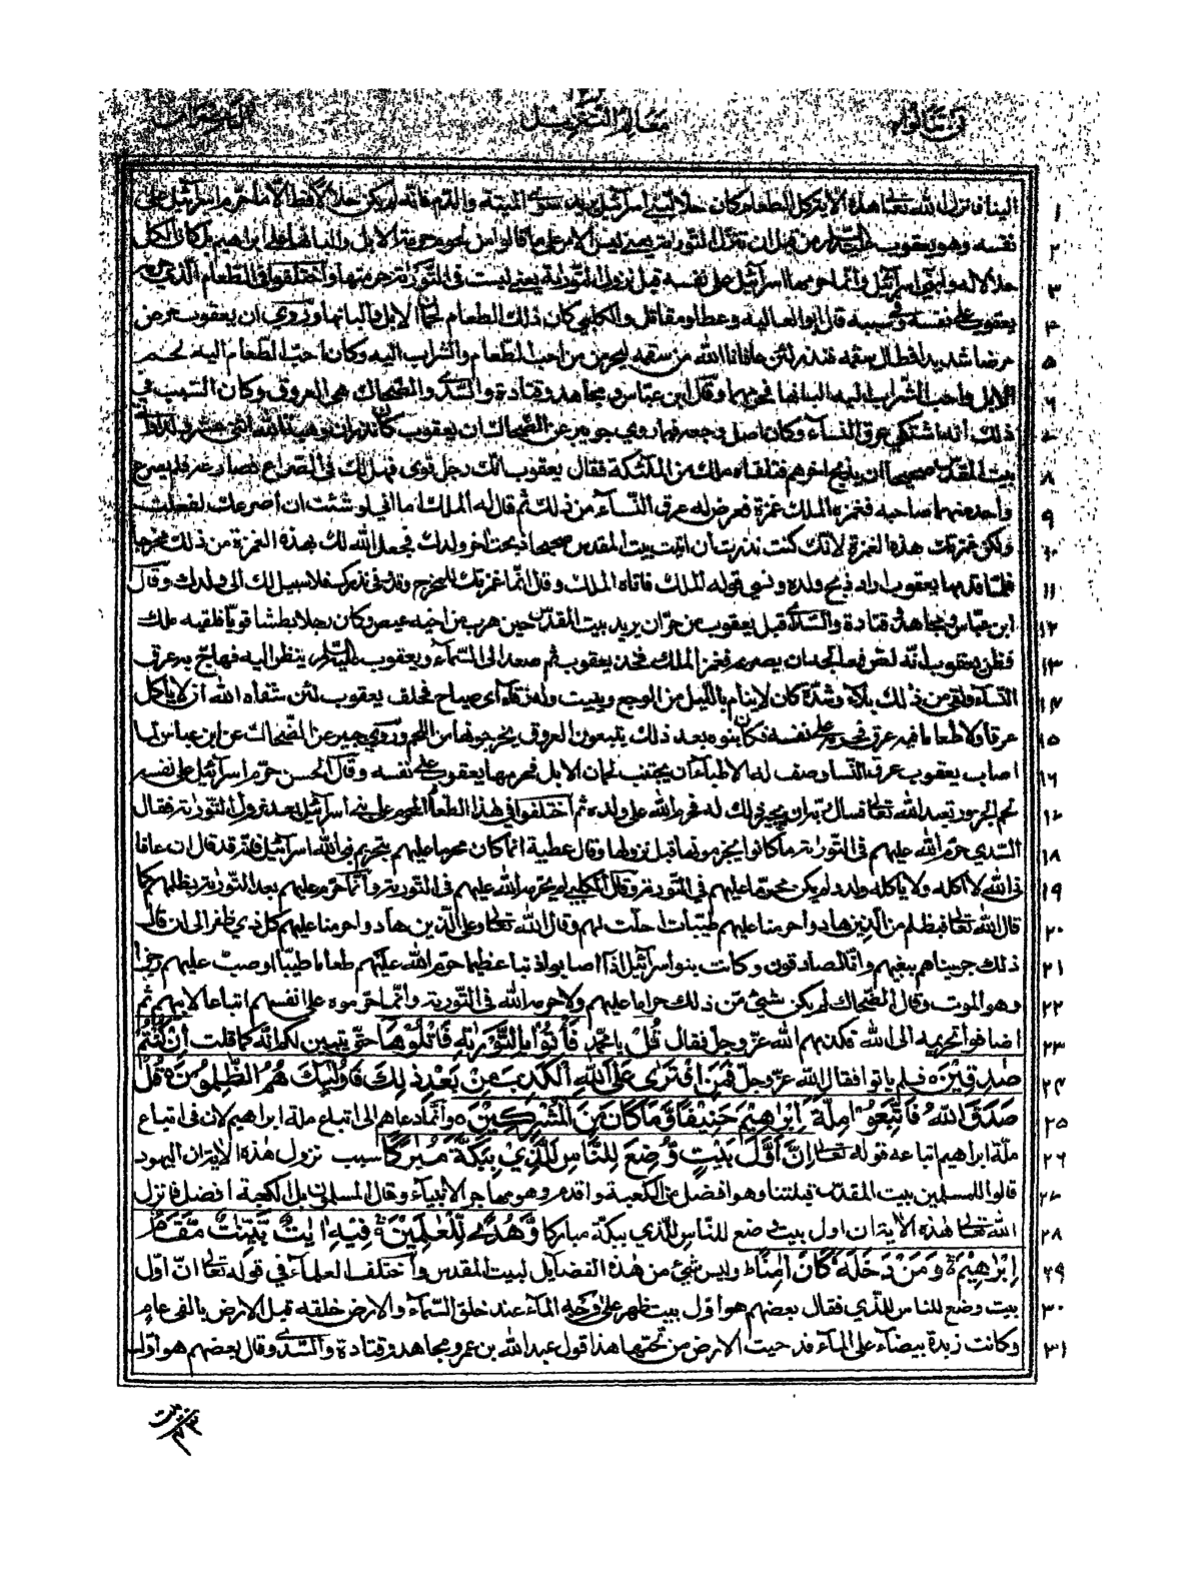 معالم التنزيل
١ الينا فانزل الله تعالى هذه الاية كل الطعام كان حلا لبني اسرآئيل يريد سوى الميتة والدم فانه لم يكن حلالا قط الا ما حرم اسرآئيل على
٢ نفسه وهو يعقوب عليه السلام من قبل ان تنزل التورىة يعني ليس الامر على ما قالوا من لحوم حرمة الابل والبانها على ابراهيم بل كان الكل
٣ حلالا له ولبني اسرآئيل وانما حرمها اسرآئيل على نفسه قبل نزول التورىة يعني ليست في التورىة حرمتها واختلفوا في الطعام الذي حرمه
٤ يعقوب على نفسه وفي سببه قال ابو العالية وعطا ومقاتل والكلبي كان ذلك الطعام لحمان الابل والبانها وروي ان يعقوب مرض
٥ مرضا شديدا فطال سقمه فنذر لئن عافانا الله من سقمه ليحرمن من احب الطعام والشراب اليه وكان احب الطعام اليه لحم
٦ الابل واحب الشراب اليه البانها فحرمهما وقال ابن عباس ومجاهد وقتادة والسدي والضحاك هي العروق وكان السبب في
٧ ذلك انه اشتكى عرق النسآء وكان اصل وجعه فيما روي جويبر عن الضحاك ان يعقوب كان نذر ان وهبه الله اثني عشر ولدا واتى
٨ بيت المقدس صحيحا ان يذبح اخرهم فتلقاه ملك من الملئكة فقال يعقوب انك رجل قوي فهل لك في الصراع فصارعه فلم يصرع
٩ واحد منهما صاحبه فغمزه الملك غمزة فعرض له عرق النسآء من ذلك ثم قال له الملك اما اني لو شئت ان اصرعك لفعلت
١٠ ولكن غمزتك هذه الغمزة لانك كنت نذرت ان اتيت بيت المقدس صحيحا ذبحت اخر ولدك فجعل الله لك بهذه الغمزة من ذلك مخرجا
١١ فلما قدمها يعقوب اراد ذبح ولده ونسي قوله الملك فاتاه الملك وقال انما غمزتك للمخرج وقد وفي نذرك فلا سبيل لك الى ولدك وقال
١٢ ابن عباس ومجاهد وقتادة والسدي قبل يعقوب من حران يريد بيت المقدس حين هرب من اخيه عيص وكان رجلا بطشا قويا فلقيه ملك
١٣ فظن يعقوب انه لص فعالجه ان يصرعه فغمز الملك فخذ يعقوب ثم صعد الى السمآء ويعقوب عليه السلام ينظر اليه فهاج به عرق
١٤ النسآء فلقي من ذلك بلآء وشدة كان لا ينام بالليل من الوجع ويبيت وله زقآء اي صياح فحلف يعقوب لئن شفاه الله ان لا ياكل
١٥ عرقا ولا طعاما فيه عرق فحرمه على نفسه فكان بنوه بعد ذلك يتبعون العروق يخرجونها من اللحم وروي جبير عن الضحاك عن ابن عباس لما
١٦ اصاب يعقوب عرق النسا وصف له الاطبآء ان يجتنب لحمان الابل فحرمها يعقوب على نفسه وقال الحسن حرم اسرآئيل على نفسه
١٧ لحم الجزور تعبد الله تعالى فسال ربه ان يجيز ذلك له فحرم الله على ولده ثم اختلفوا في هذا الطعام المحرم على بني اسرآئيل بعد نزول التورىة فقال
١٨ السدي حرم الله عليهم في التورىة ما كانوا يحرمونها قبل نزولها وقال عطية انما كان محرما عليهم بتحريم اسرآئيل فانه قد قال ان عافا
١٩ ني الله لا اكله ولا ياكله ولد لم يكن محرما عليهم في التورىة وقال الكلبي لم يحرمه الله عليهم في التورىة وانما حرم عليهم بعد التورىة بظلمهم كما
٢٠ قال الله تعالى فبظلم من الذين هادوا حرمنا عليهم طيبات احلت لهم وقال الله تعالى وعلى الذين هادوا حرمنا عليهم كل ذي ظفر الى ان قال
٢١ ذلك جزيناهم ببغيهم وانا لصادقون وكانت بنو اسرآئيل اذا اصابوا ذنبا عظما حرم الله عليهم طعاما طيبا او صب عليهم رجزا
٢٢ وهو الموت وقال الضحاك لم يكن شيئ من ذلك حراما عليهم ولا حرمه الله في التورىة وانما حرموه على انفسهم اتباعا لابيهم ثم
٢٣ اضافوا تحريمه الى الله فكذبهم الله عز وجل فقال قُلْ يا محمد فَأْتُوْا بِالتَّوْرٰىةِ فَاتْلُوْهَا حتى يتبين لكم انه كما قلت اِنْ كُنْتُمْ
٢٤ صٰدِقِيْنَ ه فلم ياتوا فقال الله عز وجل فَمَنِ افْتَرٰى عَلَى اللهِ الْكَذِبَ مِنْ بَعْدِ ذٰلِكَ فَاُولٰٓئِكَ هُمُ الظّٰلِمُوْنَ ه قُلْ
٢٥ صَدَقَ اللهُ فَاتَّبِعُوْا مِلَّةَ اِبْرٰهِيْمَ حَنِيْفًا وَّمَا كَانَ مِنَ الْمُشْرِكِيْنَ ه وانما دعاهم الى اتباع ملة ابراهيم لان في اتباع
٢٦ ملة ابراهيم اتباعه قوله تعالى اِنَّ اَوَّلَ بَيْتٍ وُّضِعَ لِلنَّاسِ لَلَّذِيْ بِبَكَّةَ مُبٰرَكًا سبب نزول هذه الاية ان اليهود
٢٧ قالوا للمسلمين بيت المقدس قبلتنا وهو افضل من الكعبة واقدم وهو مهاجر الانبيآء وقال المسلمون بل الكعبة افضل فانزل
٢٨ الله تعالى هذه الاية ان اول بيت وضع للناس للذي ببكة مباركا وَّهُدًى لِّلْعٰلَمِيْنَ ه فِيْهِ اٰيٰتٌۢ بَيِّنٰتٌ مَّقَامُ
٢٩ اِبْرٰهِيْمَ ه وَمَنْ دَخَلَهٗ كَانَ اٰمِنًا ط وليس شيئ من هذه الفضايل لبيت المقدس واختلف العلمآء في قوله تعالى ان اول
٣٠ بيت وضع للناس للذي فقال بعضهم هو اول بيت ظهر على وجه المآء عند خلق السمآء والارض خلقه قبل الارض بالفي عام
٣١ وكانت زبدة بيضآء على المآء فدحيت الارض من تحتها هذا قول عبد الله بن عمر ومجاهد وقتادة والسدي وقال بعضهم هو اول